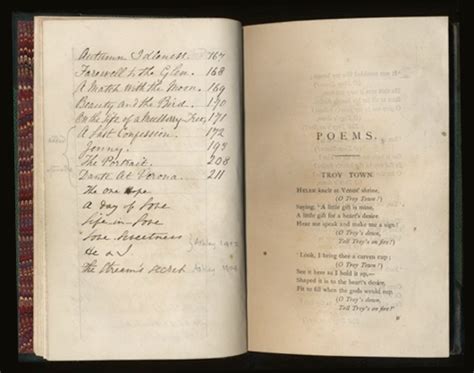 Autumn Idleness. 167
Farewell to the Glen. 168
A Match with the Moon. 169
Beauty and the Bird. 170
On the site of a Mulberry Tree, 171
A Last Confession. 172
Jenny. 193
The Portrait. 208
Dante At Verona. 211
The One Hope
A day of Love
Life-in-Love
Love Sweetness
He & I.
The Stream's Secret
POEMS.
TROY TOWN.
HELEN knelt at Venus' shrine,
(O Troy Town!)
Saying, "A little gift is mine,
A little gift for a heart's desire.
Hear me speak and make me a sign!
(O Troy's down,
Tall Troy's on fire!)
"Look, I bring thee a carven cup;
(O Troy Town!)
See it here as I hold it up,—
Shaped it is to the heart's desire,
Fit to fill when the gods would sup.
(O Troy's down,
Tall Troy's on fire!)